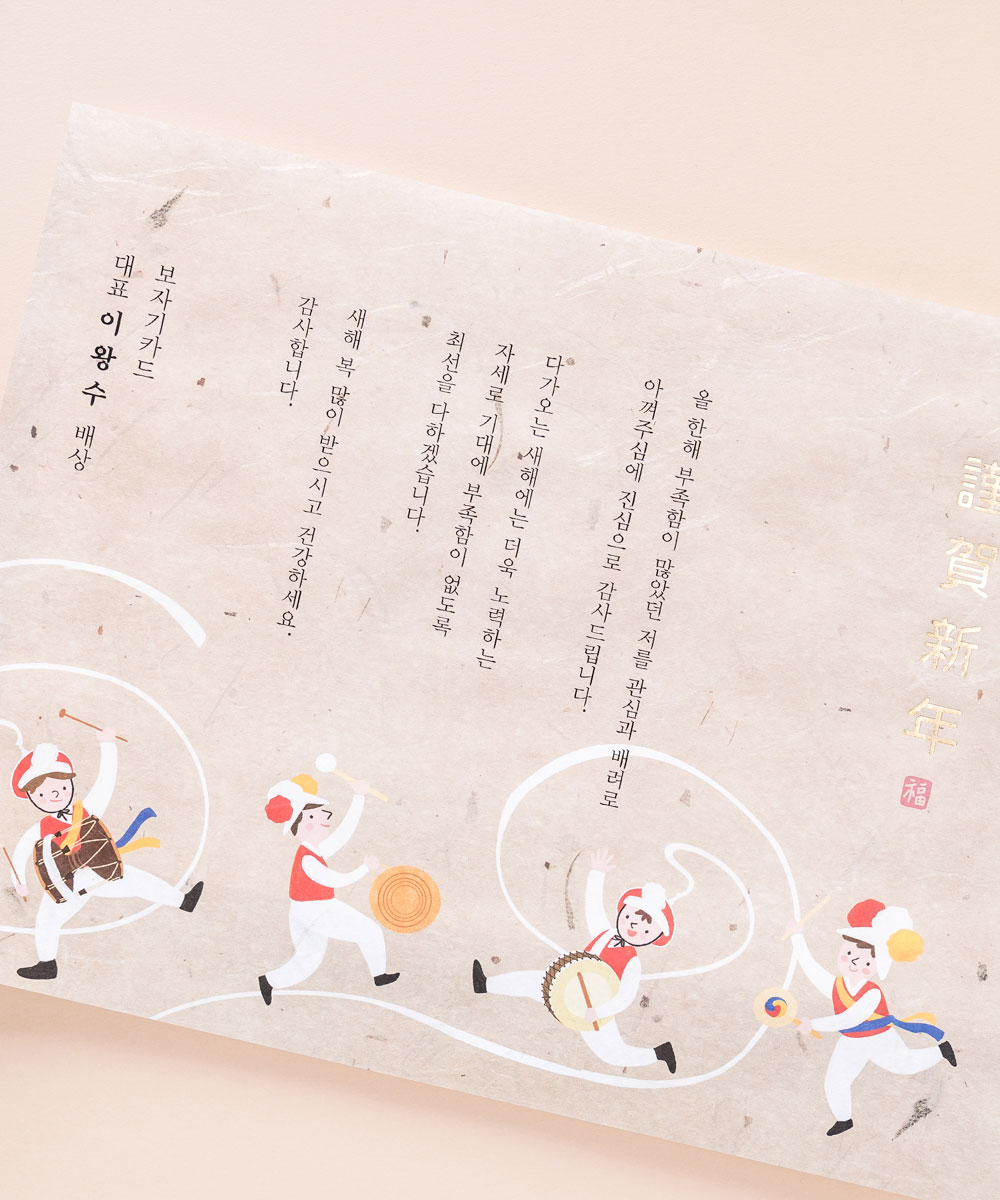 謹賀新年
福
올 한해 부족함이 많았던 저를 관심과 배려로
아껴주심에 진심으로 감사드립니다.
다가오는 새해에는 더욱 노력하는
자세로 기대에 부족함이 없도록
최선을 다하겠습니다.
새해 복 많이 받으시고 건강하세요.
감사합니다.
보자기카드
대표 이왕수 배상